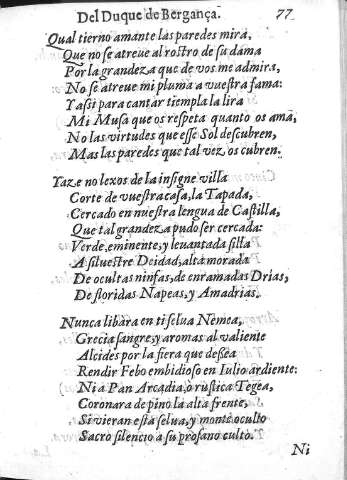 Del Duque de Bergança. 77
Qual tierno amante las paredes mira,
Que no se atreue al rostro de su dama
Por la grandeza que de vos me admira,
No se atreue mi pluma a vuestra fama:
Y assi para cantar tiempla la lira
Mi Musa que os respeta quanto os ama,
No las virtudes que esse Sol descubren,
Mas las paredes que tal vez os cubren.
Yaze no lexos de la insigne villa
Corte de vuestra casa, la Tapada,
Cercado en nuestra lengua de Castilla,
Que tal grandeza pudo ser cercada:
Verde, eminente, y leuantada silla
A siluestre Deidad, alta morada
De ocultas ninfas, de enramadas Drias,
De floridas Napeas, y Amadrias.
Nunca libàra en ti selua Nemea,
Grecia sangre, y aromas al valiente
Alcides por la fiera que dessea
Rendir Febo embidioso en Iulio ardiente:
Ni a Pan Arcadia, ò rustica Tegea,
Coronara de pino la alta frente,
Si vieran esta selua, y monte oculto
Sacro silencio a su profano culto.
Ni